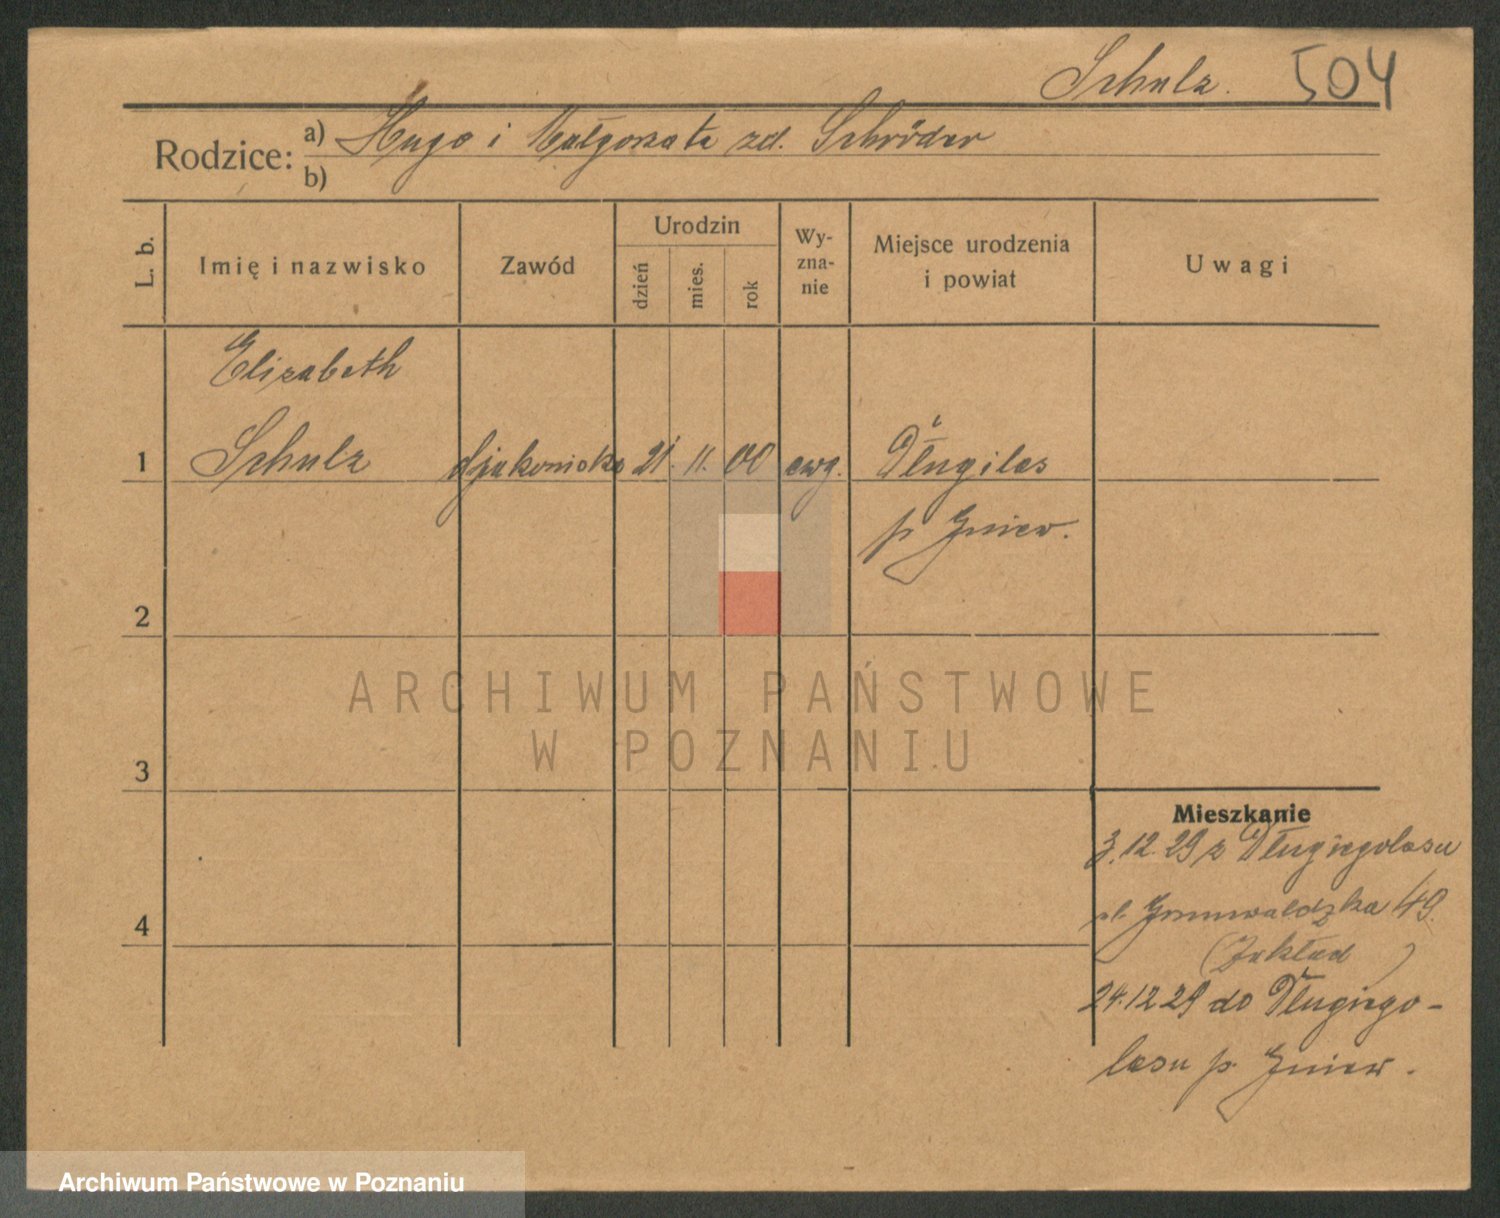 Schulz. 504
Rodzice: a) Hugo i Małgorzata zd. Schröder
b)
L. b. Imię i nazwisko Zawód Urodzin dzień mies. rok Wy-zna-nie Miejsce urodzenia i powiat Uwagi
Elizabeth
1 Schulz djakoniska 21. 11. 00 ewg. Długilas
p. Gniew.
2
3
Mieszkanie
3.12.29 z Długiegolasu
ul. Grunwaldzka 49.
4
(Zakład)
24.12 29 do Długiego-
lasu p. Gniew.
ARCHIWUM PAŃSTWOWE
W POZNANIU
Archiwum Państwowe w Poznaniu